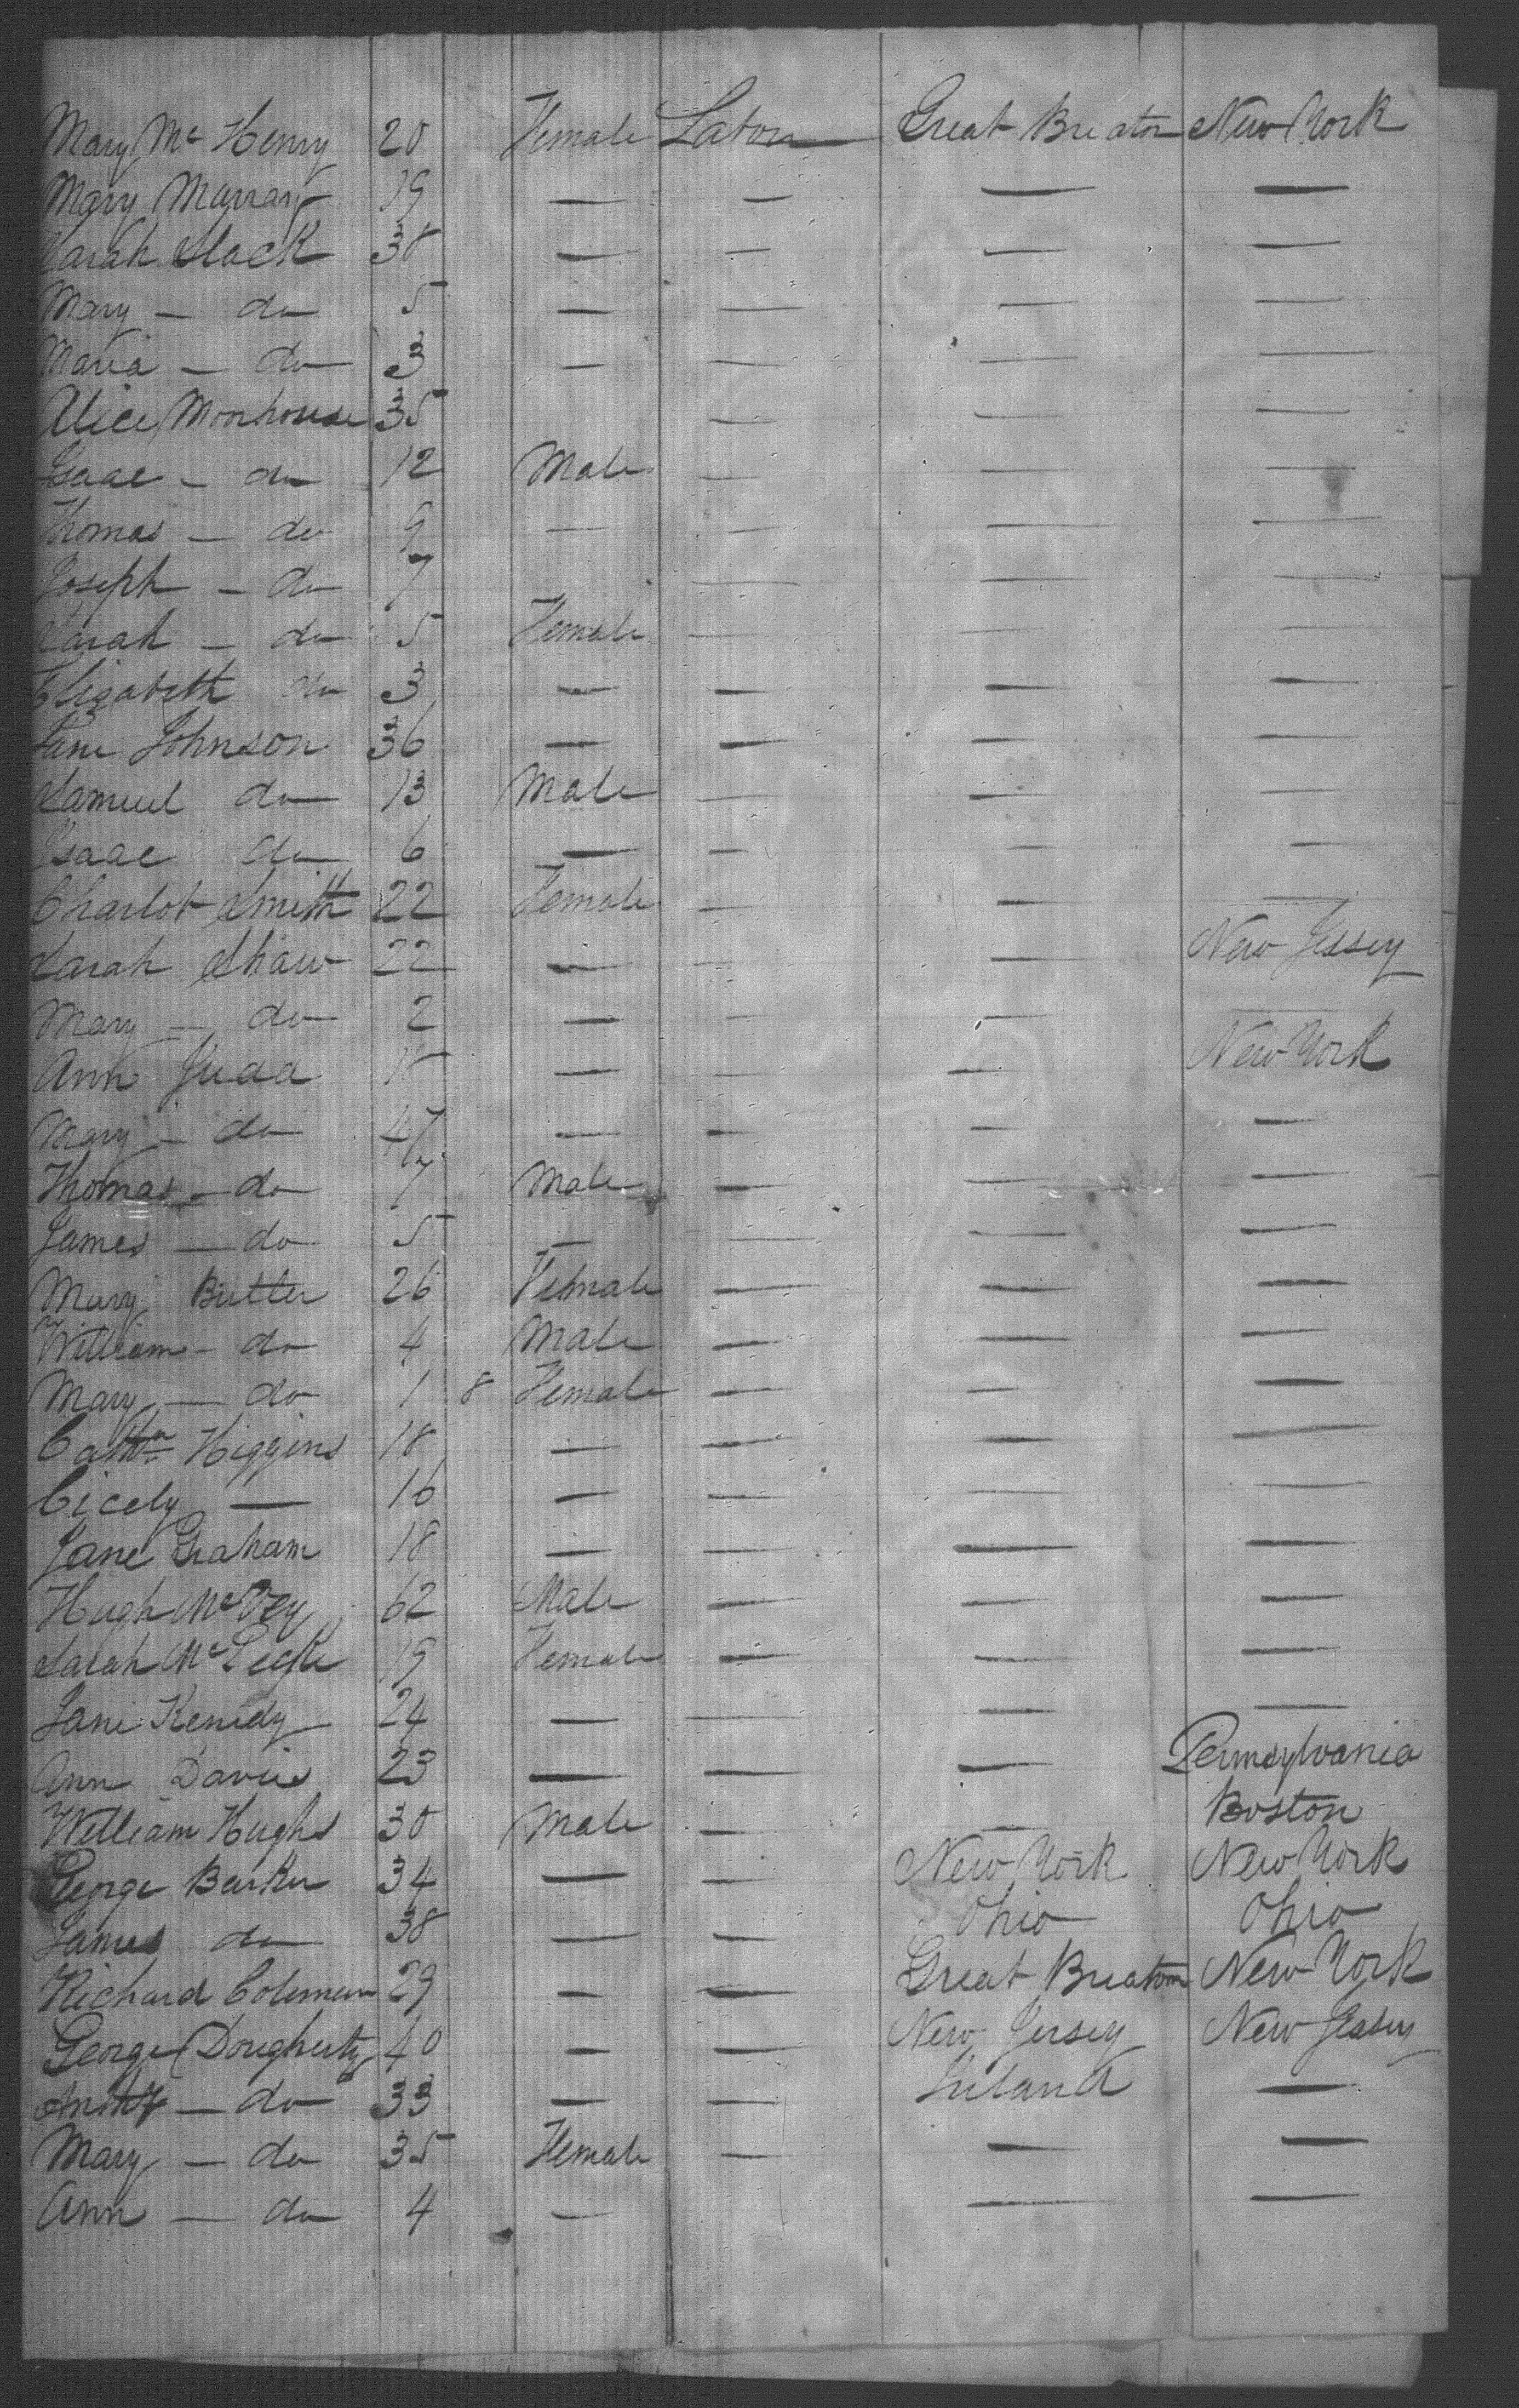 Mary Mc Henry 20 Female Labour Great Breaton New York
Mary Murray 19 — — — —
Sarah Slack 38 — — — —
Mary — do 5 — — — —
Maria — do 3 — — — —
Alice Moorhouse 35 — — —
Isaac — do 12 Male — — —
Thomas — do 9 — — — —
Joseph — do 7 — — —
Sarah — do 5 Female — — —
Elizabeth do 3 — — — —
Jane Johnson 36 — — — —
Samuel do 13 Male — — —
Isaac do 6 — — — —
Charlot Smith 22 Female — — —
Sarah Shaw 22 — — — New Jersey
Mary — do 2 — — — —
Ann Judd 18 — — — New York
Mary — do 47 — — — —
Thomas — do 7 Male — — —
James — do 5 — — — —
Mary Butler 26 Female — — —
William — do 4 Male — — —
Mary — do 1 8 Female — — —
Cathn Higgins 18 — — — —
Cicely — 16 — — — —
Jane Graham 18 — — — —
Hugh McVey 62 Male — — —
Sarah Mc 19 Female — — —
Jane Kenedy 24 — — — —
Ann Davis 23 — — — Pennsylvania
William Hughs 30 Male — — Boston
George Barker 34 — — New York New York
James do 38 — — Ohio Ohio
Richard Coleman 29 — — Great Breaton New York
George Dougherty 40 — — New Jersey New Jersey
do 33 — — Ireland —
Mary — do 35 Female — — —
Ann — do 4 — — —